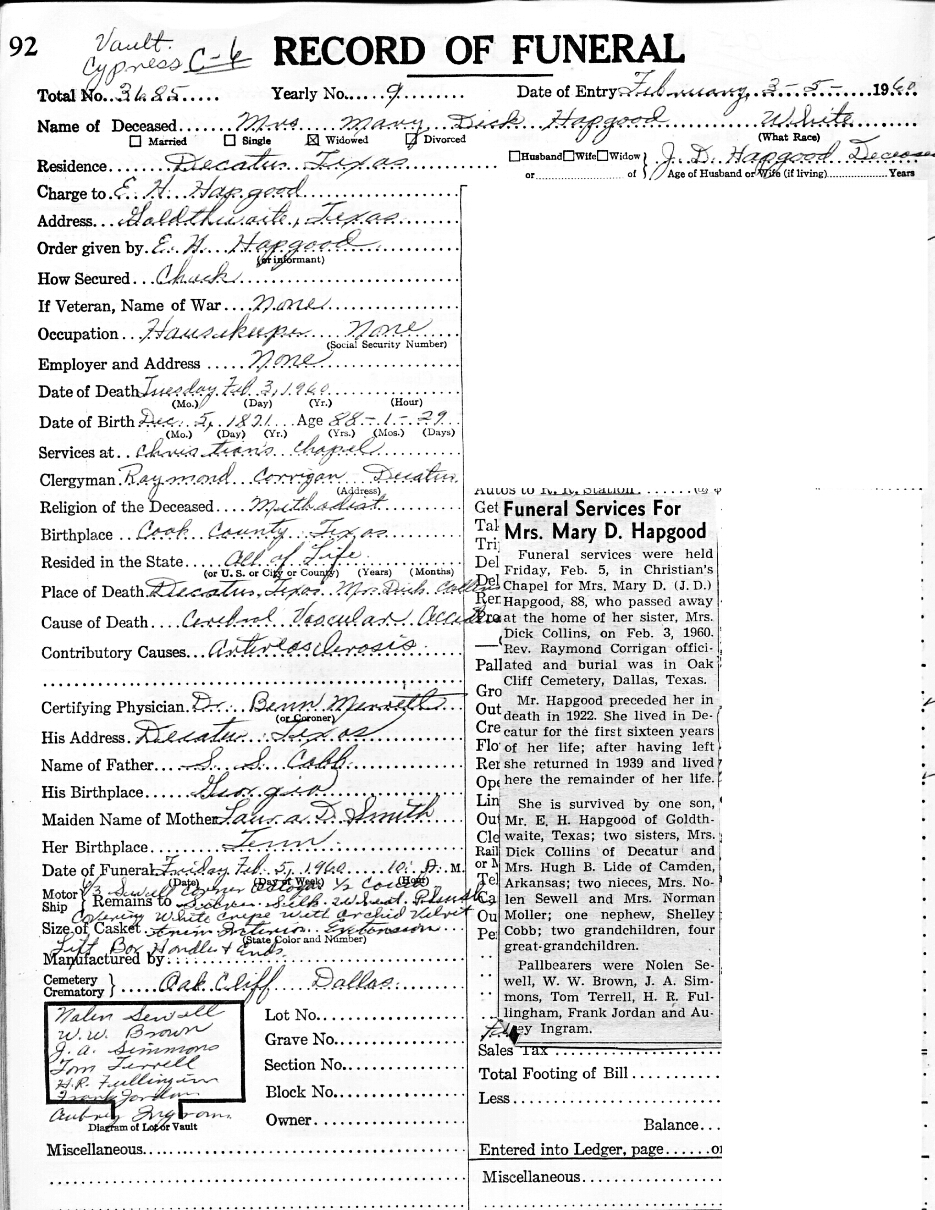 92
Vault.
Cypress C-6
RECORD OF FUNERAL
Total No. 3685 Yearly No. 9 Date of Entry February 3-5- 1960
Name of Deceased Mrs Mary Dick Hapgood White
(What Race)
Married Single Widowed Divorced
Residence Decatur Texas
Husband Wife Widow J. D. Hapgood
or of Age of Husband or Wife (if living) Years
Charge to E. H. Hapgood
Address Goldthwaite, Texas
Order given by E. H. Hapgood
(or informant)
How Secured
If Veteran, Name of War None
Occupation Housekeeper None
(Social Security Number)
Employer and Address None
Date of Death Tuesday Feb 3, 1960
(Mo.) (Day) (Yr.) (Hour)
Date of Birth Dec. 5, 1871 Age 88-1-29
(Mo.) (Day) (Yr.) (Yrs.) (Mos.) (Days)
Services at Christian's Chapel
Clergyman Raymond Corrigan Decatur
(Address)
Religion of the Deceased Methodist
Birthplace Cook County Texas
Resided in the State All of Life
(or U. S. or City or County) (Years) (Months)
Place of Death Decatur, Texas Mrs Dick Collins
Cause of Death Cerebral Vascular
Contributory Causes Arteriosclerosis
Certifying Physician Dr. Benn
(or Coroner)
His Address Decatur Texas
Name of Father S. S. Cobb
His Birthplace Georgia
Maiden Name of Mother Laura D. Smith
Her Birthplace Tenn
Date of Funeral Friday Feb. 5, 1960 10: A. M.
(Date) (Day of Week) (Hour)
Motor
Ship } Remains to
Covering White Crepe with Orchid Velvet
Size of Casket Interior Extension
(State Color and Number)
Lift Box Handles & Ends.
Manufactured by
Cemetery
Crematory } Oak Cliff Dallas
Nolen Sewell
W. W. Brown
J. A. Simmons
Tom Terrell
H. R. Fullingim
Frank Jordan
Aubrey Ingram
Diagram of Lot or Vault
Lot No.
Grave No.
Section No.
Block No.
Owner
Miscellaneous
Autos to R. R. Station
Get
Tal
Tri
Del
Del
Rer
Pall
Gro
Out
Cre
Flo
Rer
Ope
Lin
Out
Cle
Rail
or M
Te
Ca
Ou
Pe
Funeral Services For
Mrs. Mary D. Hapgood
Funeral services were held
Friday, Feb. 5, in Christian's
Chapel for Mrs. Mary D. (J. D.)
Hapgood, 88, who passed away
at the home of her sister, Mrs.
Dick Collins, on Feb. 3, 1960.
Rev. Raymond Corrigan offici-
ated and burial was in Oak
Cliff Cemetery, Dallas, Texas.
Mr. Hapgood preceded her in
death in 1922. She lived in De-
catur for the first sixteen years
of her life; after having left
she returned in 1939 and lived
here the remainder of her life.
She is survived by one son,
Mr. E. H. Hapgood of Goldth-
waite, Texas; two sisters, Mrs.
Dick Collins of Decatur and
Mrs. Hugh B. Lide of Camden,
Arkansas; two nieces, Mrs. No-
len Sewell and Mrs. Norman
Moller; one nephew, Shelley
Cobb; two grandchildren, four
great-grandchildren.
Pallbearers were Nolen Se-
well, W. W. Brown, J. A. Sim-
mons, Tom Terrell, H. R. Ful-
lingham, Frank Jordan and Au-
ey Ingram.
Sales Tax
Total Footing of Bill
Less
Balance
Entered into Ledger, page
Miscellaneous